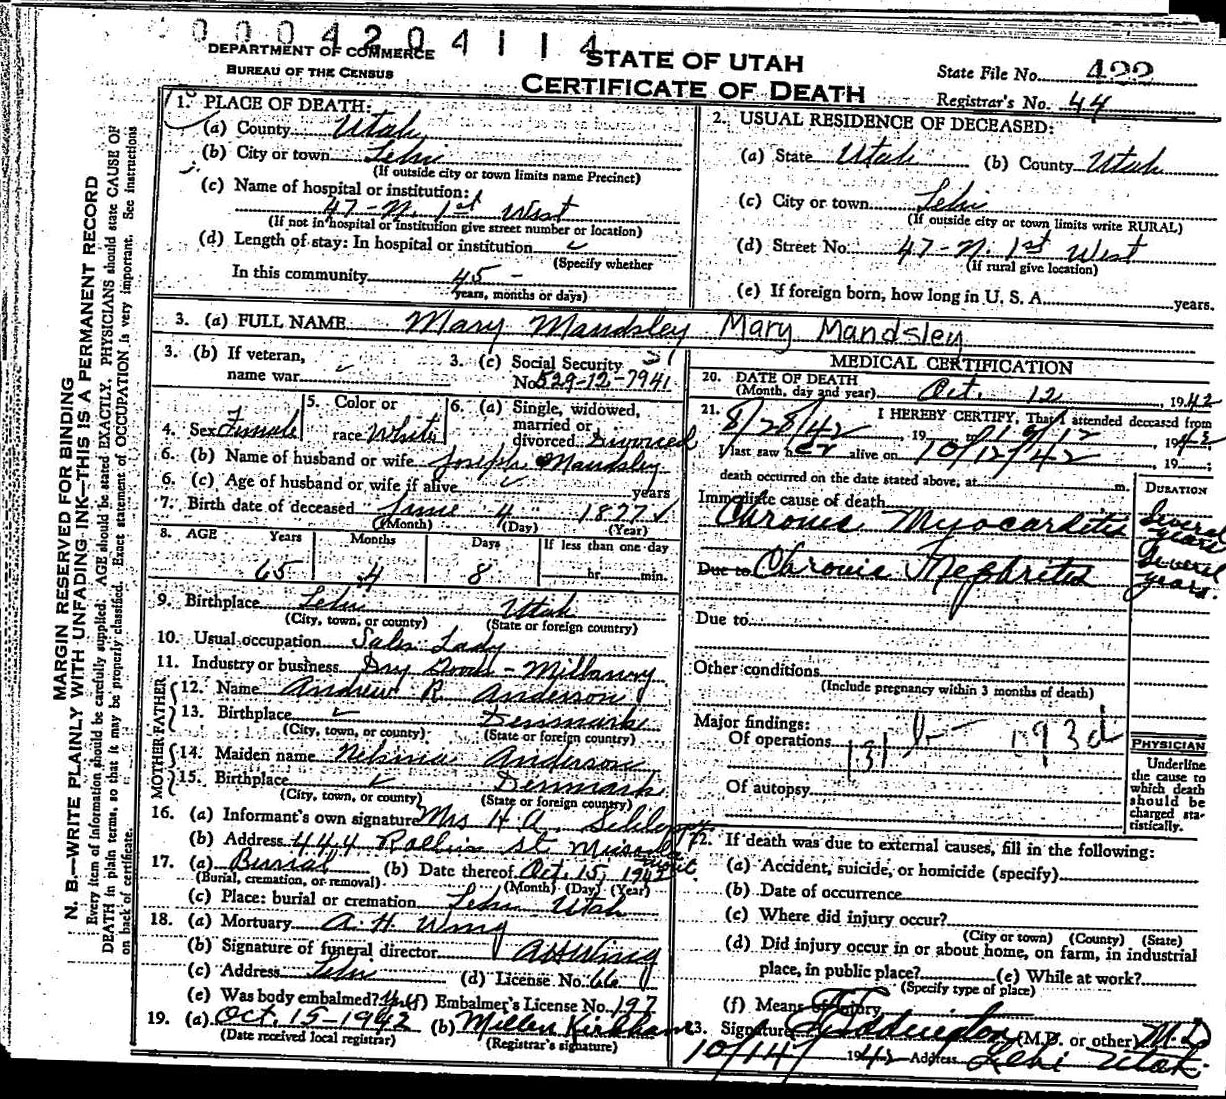 0004204114
DEPARTMENT OF COMMERCE
BUREAU OF THE CENSUS
STATE OF UTAH
CERTIFICATE OF DEATH
State File No. 422
Registrar's No. 44
MARGIN RESERVED FOR BINDING
N. B.—WRITE PLAINLY WITH UNFADING INK—THIS IS A PERMANENT RECORD
Every item of information should be carefully supplied. AGE should be stated EXACTLY. PHYSICIANS should state CAUSE OF
DEATH in plain terms, so that it may be properly classified. Exact statement of OCCUPATION is very important. See instructions
on back of certificate.
1. PLACE OF DEATH:
(a) County Utah
(b) City or town Lehi
(If outside city or town limits name Precinct)
(c) Name of hospital or institution:
47-N. 1st West
(If not in hospital or institution give street number or location)
(d) Length of stay: In hospital or institution
(Specify whether
In this community 45 -
years, months or days)
2. USUAL RESIDENCE OF DECEASED:
(a) State Utah (b) County Utah
(c) City or town Lehi
(If outside city or town limits write RURAL)
(d) Street No. 47-N. 1st West
(If rural give location)
(e) If foreign born, how long in U. S. A. years.
3. (a) FULL NAME Mary Mandsley Mary Mandsley
3. (b) If veteran,
name war
3. (c) Social Security
No. 529-12-7941
4. Sex Female
5. Color or
race White
6. (a) Single, widowed,
married or
divorced Divorced
6. (b) Name of husband or wife Joseph Mandsley
6. (c) Age of husband or wife if alive years
7. Birth date of deceased June 4 1877
(Month) (Day) (Year)
8. AGE Years Months Days If less than one day
65 4 8 hr. min.
9. Birthplace Lehi Utah
(City, town, or county) (State or foreign country)
10. Usual occupation Sales Lady
11. Industry or business Dry Goods - Millanery
FATHER
12. Name Andrew R. Anderson
13. Birthplace Denmark
(City, town, or county) (State or foreign country)
MOTHER
14. Maiden name Anderson
15. Birthplace Denmark
(City, town, or county) (State or foreign country)
16. (a) Informant's own signature Mrs H A.
(b) Address 444 Rollins St. Missoula
Mont.
17. (a) Burial (b) Date thereof Oct. 15, 1942
(Burial, cremation, or removal) (Month) (Day) (Year)
(c) Place: burial or cremation Lehi Utah
18. (a) Mortuary A. H. Wing
(b) Signature of funeral director A H Wing
(c) Address Lehi (d) License No. 66
(e) Was body embalmed? Yes (f) Embalmer's License No. 197
19. (a) Oct. 15-1942 (b) Millen Kirkham
(Date received local registrar) (Registrar's signature)
MEDICAL CERTIFICATION
20. DATE OF DEATH
(Month, day and year) Oct. 12, 1942
21. I HEREBY CERTIFY, That I attended deceased from
8/28/42, 19 to 1942
I last saw her alive on 10/12/42, 19 ;
death occurred on the date stated above, at m.
DURATION
Immediate cause of death
Chronic Myocarditis
Several
years
Due to Chronic Nephritis
Several
years.
Due to
Other conditions
(Include pregnancy within 3 months of death)
Major findings:
Of operations 131 b- 093d
Of autopsy
PHYSICIAN
Underline
the cause to
which death
should be
charged sta-
tistically.
22. If death was due to external causes, fill in the following:
(a) Accident, suicide, or homicide (specify)
(b) Date of occurrence
(c) Where did injury occur?
(City or town) (County) (State)
(d) Did injury occur in or about home, on farm, in industrial
place, in public place? (e) While at work?
(Specify type of place)
(f) Means of injury
23. Signature Eddington (M.D. or other) M.D
10/14/ 1942 Address Lehi Utah.